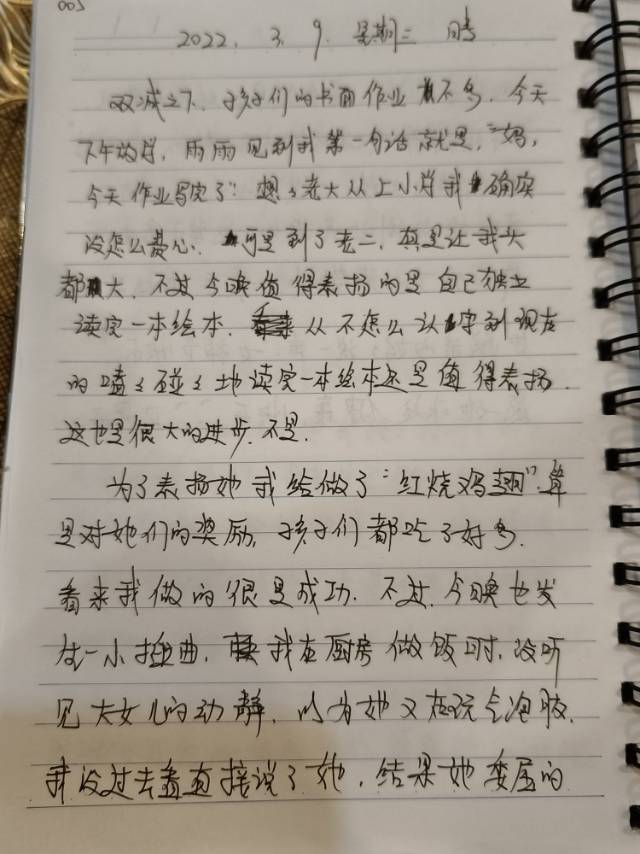 005
2022. 3. 9. 星期三 晴
双减之下, 孩子们的书面作业不多. 今天
下午放学, 雨雨见到我第一句话就是, "妈,
今天作业写完了". 想想老大从上小学我确实
没怎么费心. 可是到了老二, 真是让我头
都大. 不过今晚值得表扬的是自己独立
读完一本绘本. 从不怎么认字到现在
的磕磕碰碰地读完一本绘本还是值得表扬.
这也是很大的进步. 不是.
为了表扬她我给做了"红烧鸡翅". 算
是对她们的奖励, 孩子们都吃了好多.
看来我做的很是成功. 不过, 今晚也发
生一小插曲, 我在厨房做饭时, 没听
见大女儿的动静, 以为她又在玩气泡胶.
我没过去看直接说了她, 结果她委屈的